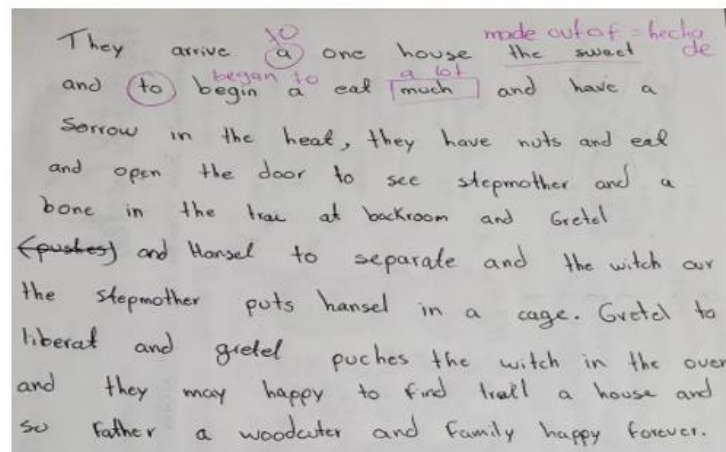 to made out of = hecho
They arrive a one house the sweet de
began to a lot
and to begin a eat much and have a
Sorrow in the heat, they have nuts and eat
and open the door to see stepmother and a
bone in the trac at backroom and Gretel
(pushes) and Hansel to separate and the witch our
the stepmother puts hansel in a cage. Gretel to
liberat and gretel puches the witch in the oven
and they may happy to find trell a house and
so Father a woodcuter and family happy forever.